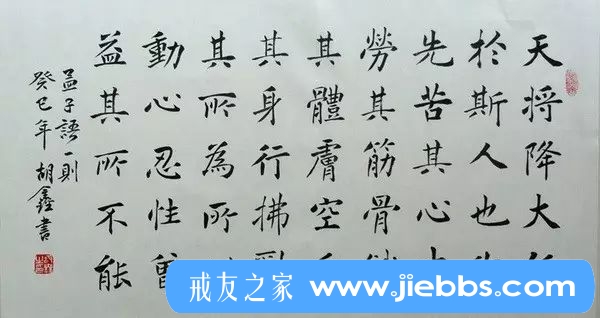 天將降大
於斯人也
先苦其心
勞其筋骨
其體膚空
其身行拂
其所為所
動心忍性曾
益其所不能
孟子語一則
癸巳年 胡鑫書
戒友之家 www.jiebbs.com